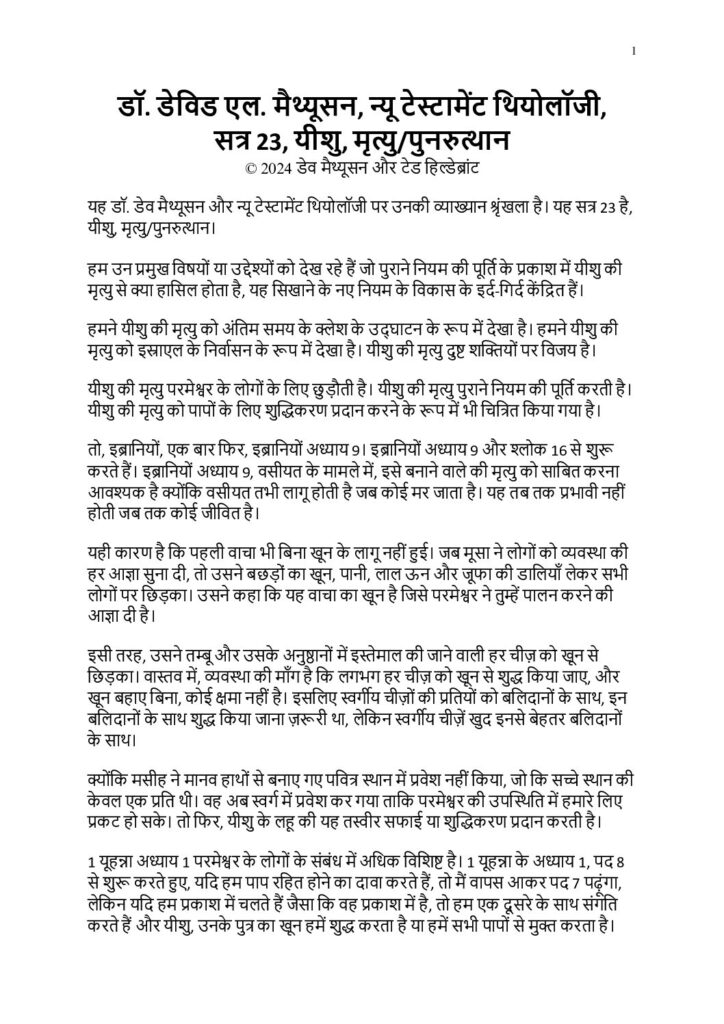 1
डॉ. डेविड एल. मैथ्यूसन, न्यू टेस्टामेंट थियोलॉजी,
सत्र 23, यीशु, मृत्यु/पुनरुत्थान
© 2024 डेव मैथ्यूसन और टेड हिल्डेब्रांट
यह डॉ. डेव मैथ्यूसन और न्यू टेस्टामेंट थियोलॉजी पर उनकी व्याख्यान श्रृंखला है। यह सत्र 23 है,
यीशु, मृत्यु/पुनरुत्थान।
हम उन प्रमुख विषयों या उद्देश्यों को देख रहे हैं जो पुराने नियम की पूर्ति के प्रकाश में यीशु की
मृत्यु से क्या हासिल होता है, यह सिखाने के नए नियम के विकास के इर्द-गिर्द केंद्रित हैं।
हमने यीशु की मृत्यु को अंतिम समय के क्लेश के उद्घाटन के रूप में देखा है। हमने यीशु की
मृत्यु को इस्राएल के निर्वासन के रूप में देखा है। यीशु की मृत्यु दुष्ट शक्तियों पर विजय है।
यीशु की मृत्यु परमेश्वर के लोगों के लिए छुड़ौती है। यीशु की मृत्यु पुराने नियम की पूर्ति करती है।
यीशु की मृत्यु को पापों के लिए शुद्धिकरण प्रदान करने के रूप में भी चित्रित किया गया है।
तो, इब्रानियों, एक बार फिर, इब्रानियों अध्याय 9। इब्रानियों अध्याय 9 और श्लोक 16 से शुरू
करते हैं। इब्रानियों अध्याय 9, वसीयत के मामले में, इसे बनाने वाले की मृत्यु को साबित करना
आवश्यक है क्योंकि वसीयत तभी लागू होती है जब कोई मर जाता है। यह तब तक प्रभावी नहीं
होती जब तक कोई जीवित है।
यही कारण है कि पहली वाचा भी बिना खून के लागू नहीं हुई। जब मूसा ने लोगों को व्यवस्था की
हर आज्ञा सुना दी, तो उसने बछड़ों का खून, पानी, लाल ऊन और जूफा की डालियाँ लेकर सभी
लोगों पर छिड़का। उसने कहा कि यह वाचा का खून है जिसे परमेश्वर ने तुम्हें पालन करने की
आज्ञा दी है।
इसी तरह, उसने तम्बू और उसके अनुष्ठानों में इस्तेमाल की जाने वाली हर चीज़ को खून से
छिड़का। वास्तव में, व्यवस्था की माँग है कि लगभग हर चीज़ को खून से शुद्ध किया जाए, और
खून बहाए बिना, कोई क्षमा नहीं है। इसलिए स्वर्गीय चीज़ों की प्रतियों को बलिदानों के साथ, इन
बलिदानों के साथ शुद्ध किया जाना ज़रूरी था, लेकिन स्वर्गीय चीज़ें खुद इनसे बेहतर बलिदानों
के साथ।
क्योंकि मसीह ने मानव हाथों से बनाए गए पवित्र स्थान में प्रवेश नहीं किया, जो कि सच्चे स्थान की
केवल एक प्रति थी। वह अब स्वर्ग में प्रवेश कर गया ताकि परमेश्वर की उपस्थिति में हमारे लिए
प्रकट हो सके। तो फिर, यीशु के लहू की यह तस्वीर सफाई या शुद्धिकरण प्रदान करती है।
1 यूहन्ना अध्याय 1 परमेश्वर के लोगों के संबंध में अधिक विशिष्ट है। 1 यूहन्ना के अध्याय 1, पद 8
से शुरू करते हुए, यदि हम पाप रहित होने का दावा करते हैं, तो मैं वापस आकर पद 7 पढ़ूंगा,
लेकिन यदि हम प्रकाश में चलते हैं जैसा कि वह प्रकाश में है, तो हम एक दूसरे के साथ संगति
करते हैं और यीशु, उनके पुत्र का खून हमें शुद्ध करता है या हमें सभी पापों से मुक्त करता है।